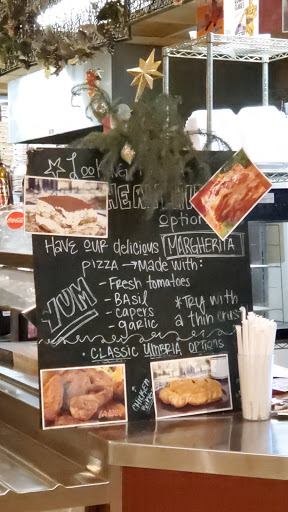 Looking
HEALTHIER
option
HAVE OUR delicious MARGHERITA
pizza → Made with:
- Fresh tomatoes
- Basil
- capers
- garlic
*TRY with
a thin crust
YUM
• CLASSIC UMBRIA OPTIONS
chicken
Coca-Cola